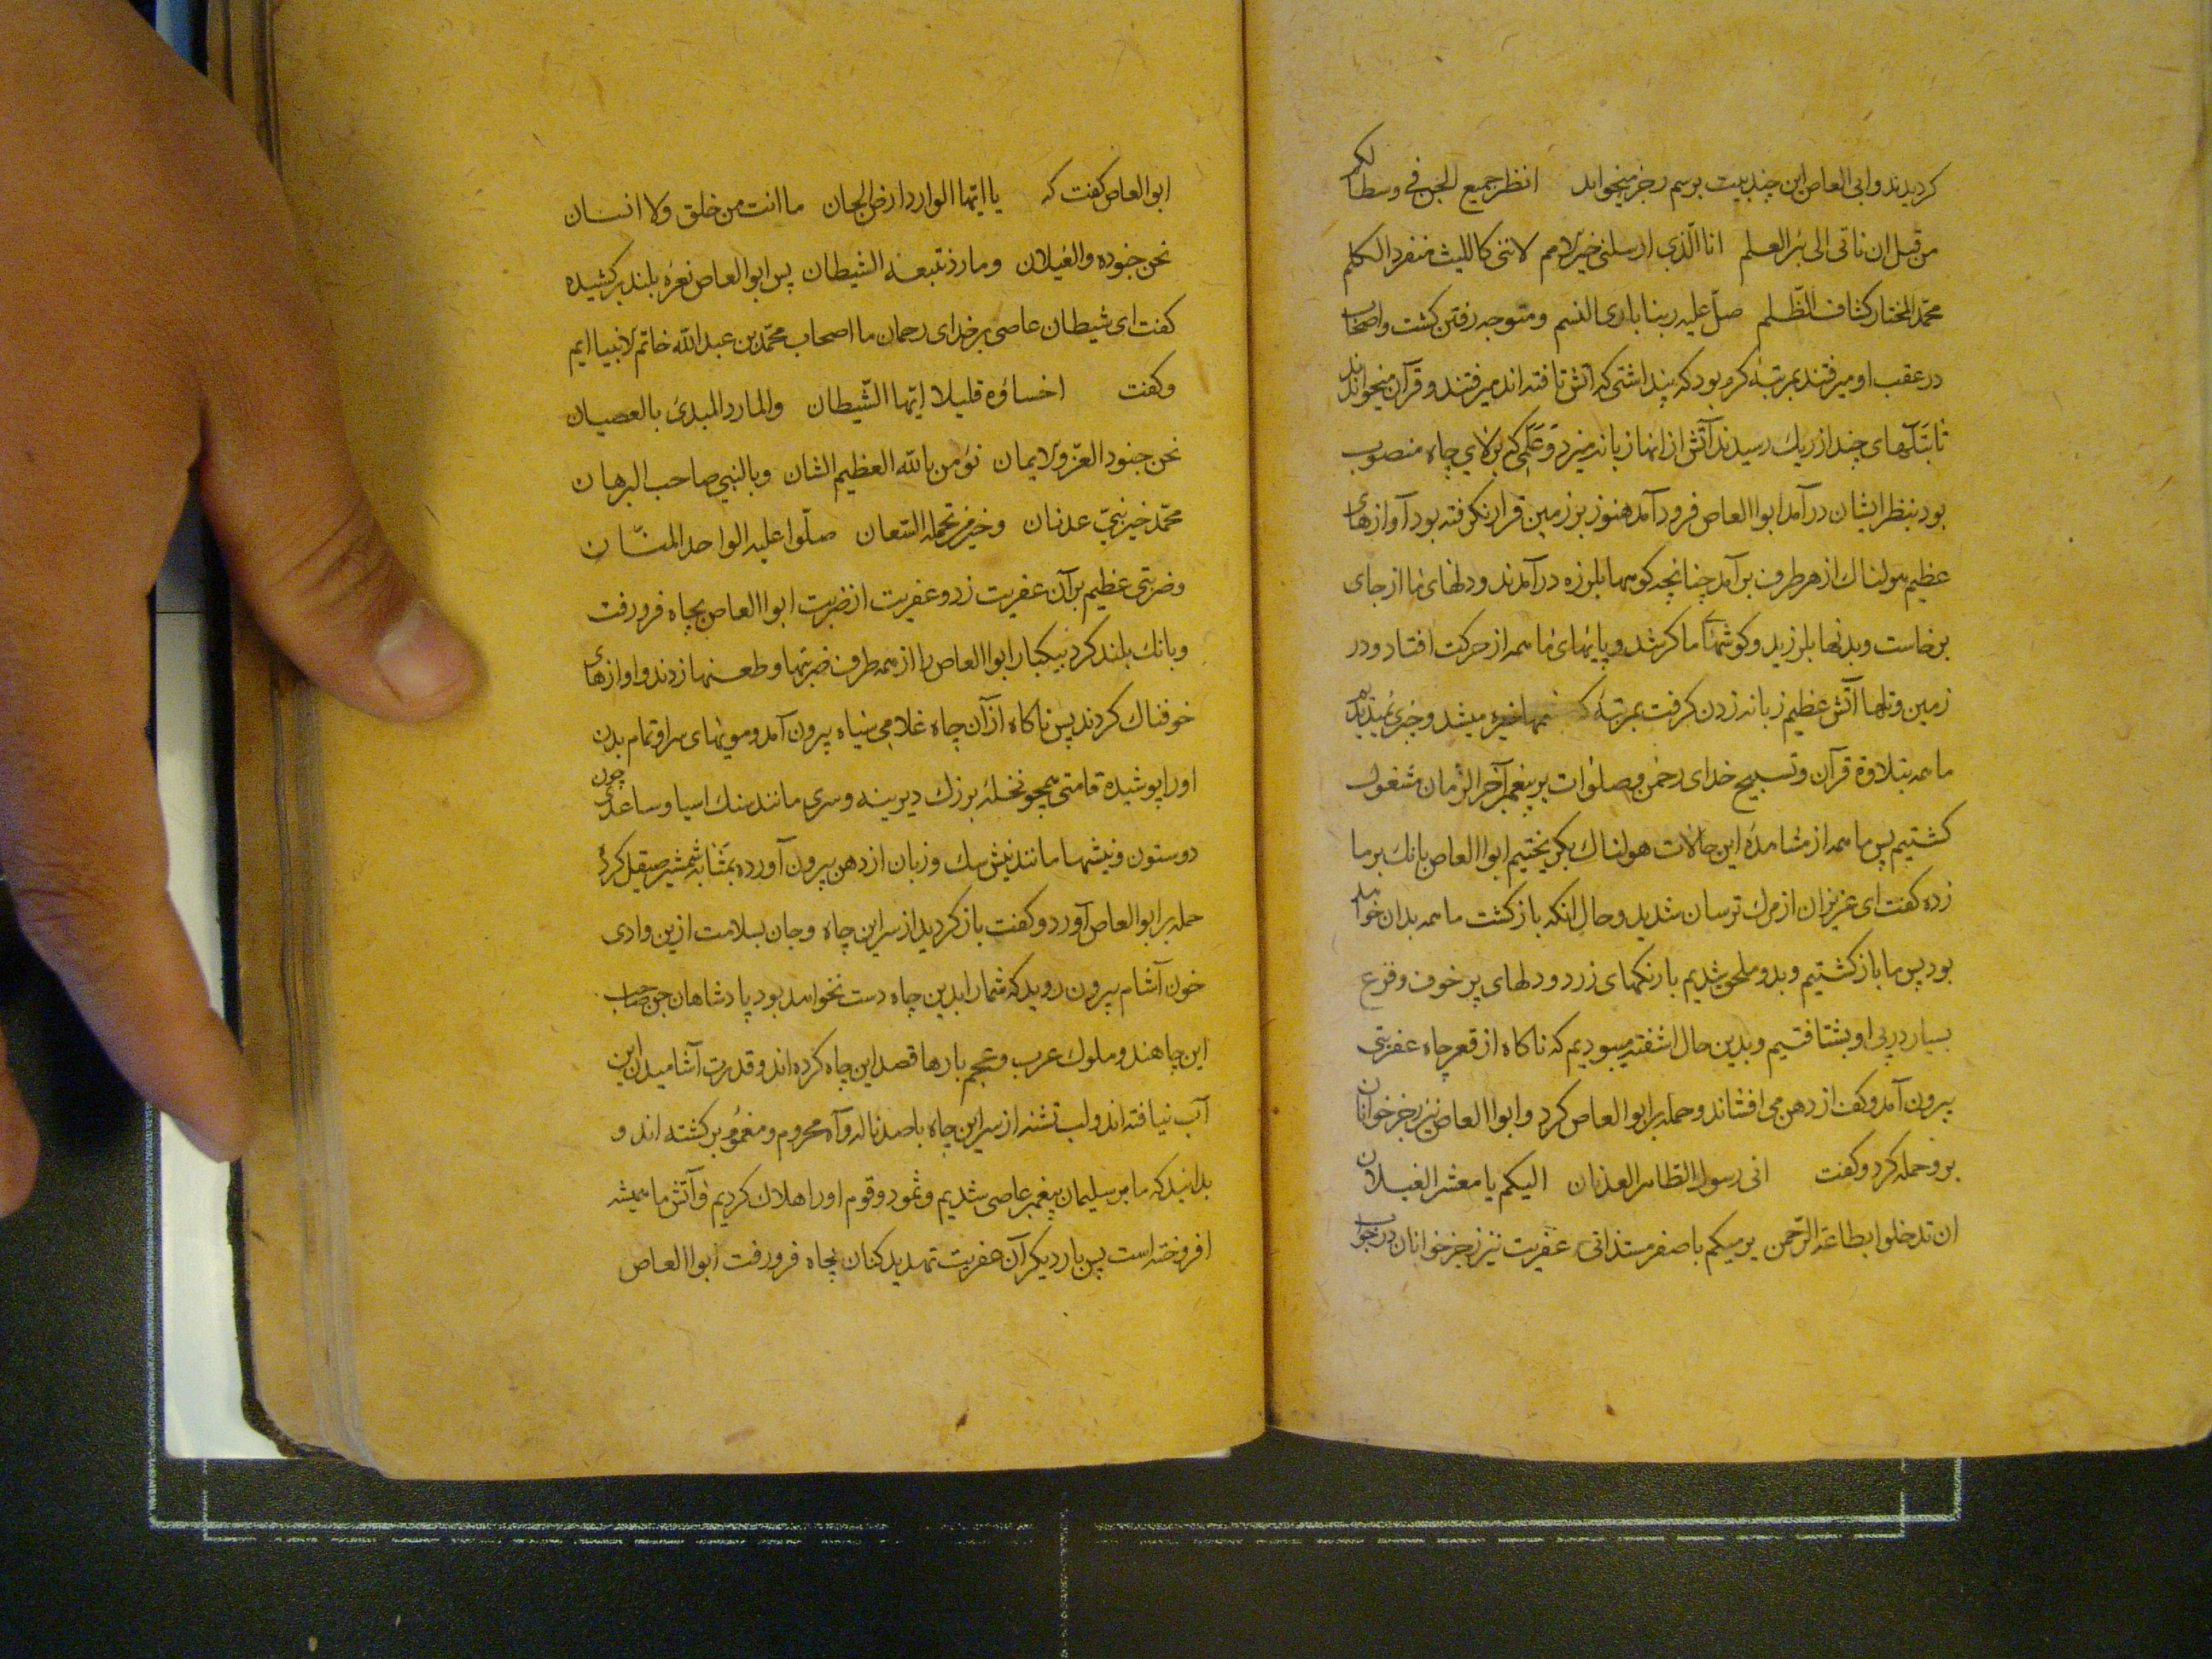 كرديدند وابي العاص اين چند بيت برسم رجز ميخواند انظر جميع الجن في وسط
من قبل ان ناتى الى بئر العلم انا الّذى ارسلنى خير الامم لاننى كالليث منفرد الكلم
محمّد المختار كشاف الظّلم صلّ عليه ربنا بارى النسم ومتوجه رفتن كشت واصحاب
در عقب او ميرفتند بمرتبۀ كرم بود كه پنداشتى كه آتش تافته اند ميرفتند وقرآن ميخواندند
تا بتلّهاى چند از ريك رسيدند آتش از انها زبانه ميزد وعَلَمى كه بر بالاي چاه منصوب
بود بنظر ايشان در آمد ابوالعاص فرود آمد هنوز بر زمين قرار نكرفته بود آوازهاى
عظيم هولناك از هر طرف بر آمد چنانچه كوهها بلرزه در آمدند ودلهاى ما از جاى
برخاست وبدنها بلرزيد وكوشهاى ما كر شد وپايهاى ما همه از حركت افتاد ودر
زمين وتلها آتش عظيم زبانه زدن كرفت بمرتبۀ كه خيره ميشد
ما همه بتلاوة قرآن وتسبيح خداى رحمن وصلوات بر پيغمبر آخر الزّمان مشغول
كشتيم پس ما همه از مشاهدۀ اين حالات هولناك بكريختيم ابوالعاص بانك بر ما
زده كفت اى عزيزان از مرك ترسان شديد وحال انكه بازكشت ما همه بدان خواهد
بود پس ما بازكشتيم وبدو ملحق شديم با رنكهاى زرد ودلهاى پر خوف وفزع
بسيار در پى او بشتافتيم وبدين حال اشفته ميبوديم كه ناكاه از قعر چاه عفريتى
بيرون آمد وكف از دهن مى افشاند وحمله بر ابوالعاص كرد وابوالعاص نيز رجز خوانان
برو حمله كرد وكفت انى رسول الطاهر العدنان اليكم يا معشر الغيلان
ان تدخلوا بطاعة الرّحمن عفريت نيز رجز خوانان در جواب
ابوالعاص كفت كه يا ايّها الوارد ارض الجان ما انت من خلق ولا انسان
نحن جنوده والغيلان ومارد تبعه الشيطان پس ابوالعاص نعرۀ بلند بركشيده
كفت اى شيطان عاصى بر خداى رحمان ما اصحاب محمّد بن عبد اللّه خاتم الانبيا ايم
وكفت اخساؤه قليلا ايّها الشّيطان والمارد المبدئ بالعصيان
نحن جنود العزّ والايمان نؤمن باللّه العظيم الشان وبالنبي صاحب البرهان
محمّد خير نبيّ عدنان وخير من صلّوا عليه الواحد المنّان
وضربتى عظيم بر آن عفريت زد وعفريت از ضربت ابوالعاص بچاه فرو رفت
وبانك بلند كرد بيكبار ابوالعاص را از همه طرف ضربتها وطعنها زدند واوازهاى
خوفناك كردند پس ناكاه از آن چاه غلامى سياه بيرون آمد ومويهاى سر او تمام بدن
اورا پوشيده قامتى همچو نخلۀ بزرك ديرينه وسرى مانند سنك اسيا وساعدى چون
دو ستون ونيشها مانند نيش سك وزبان از دهن بيرون آورده بمثابه شمشير صيقل كرده
حمله بر ابوالعاص آورد وكفت بازكرديد از سر اين چاه وجان بسلامت ازين وادى
خون آشام بيرون رويد كه شمارا بدين چاه دست نخواهد بود پادشاهان جن صاحب
اين چاهند وملوك عرب وعجم بارها قصد اين چاه كرده اند وقدرت آشاميدن اين
آب نيافته اند ولب تشنه از سر اين چاه با صد ناله وآه محروم ومغموم بركشته اند و
بدانيد كه ما بر سليمان پيغمبر عاصى شديم وثمود وقوم اورا هلاك كرديم وآتش ما هميشه
افروخته است پس بار ديكر آن عفريت تهديد كنان بچاه فرو رفت ابوالعاص